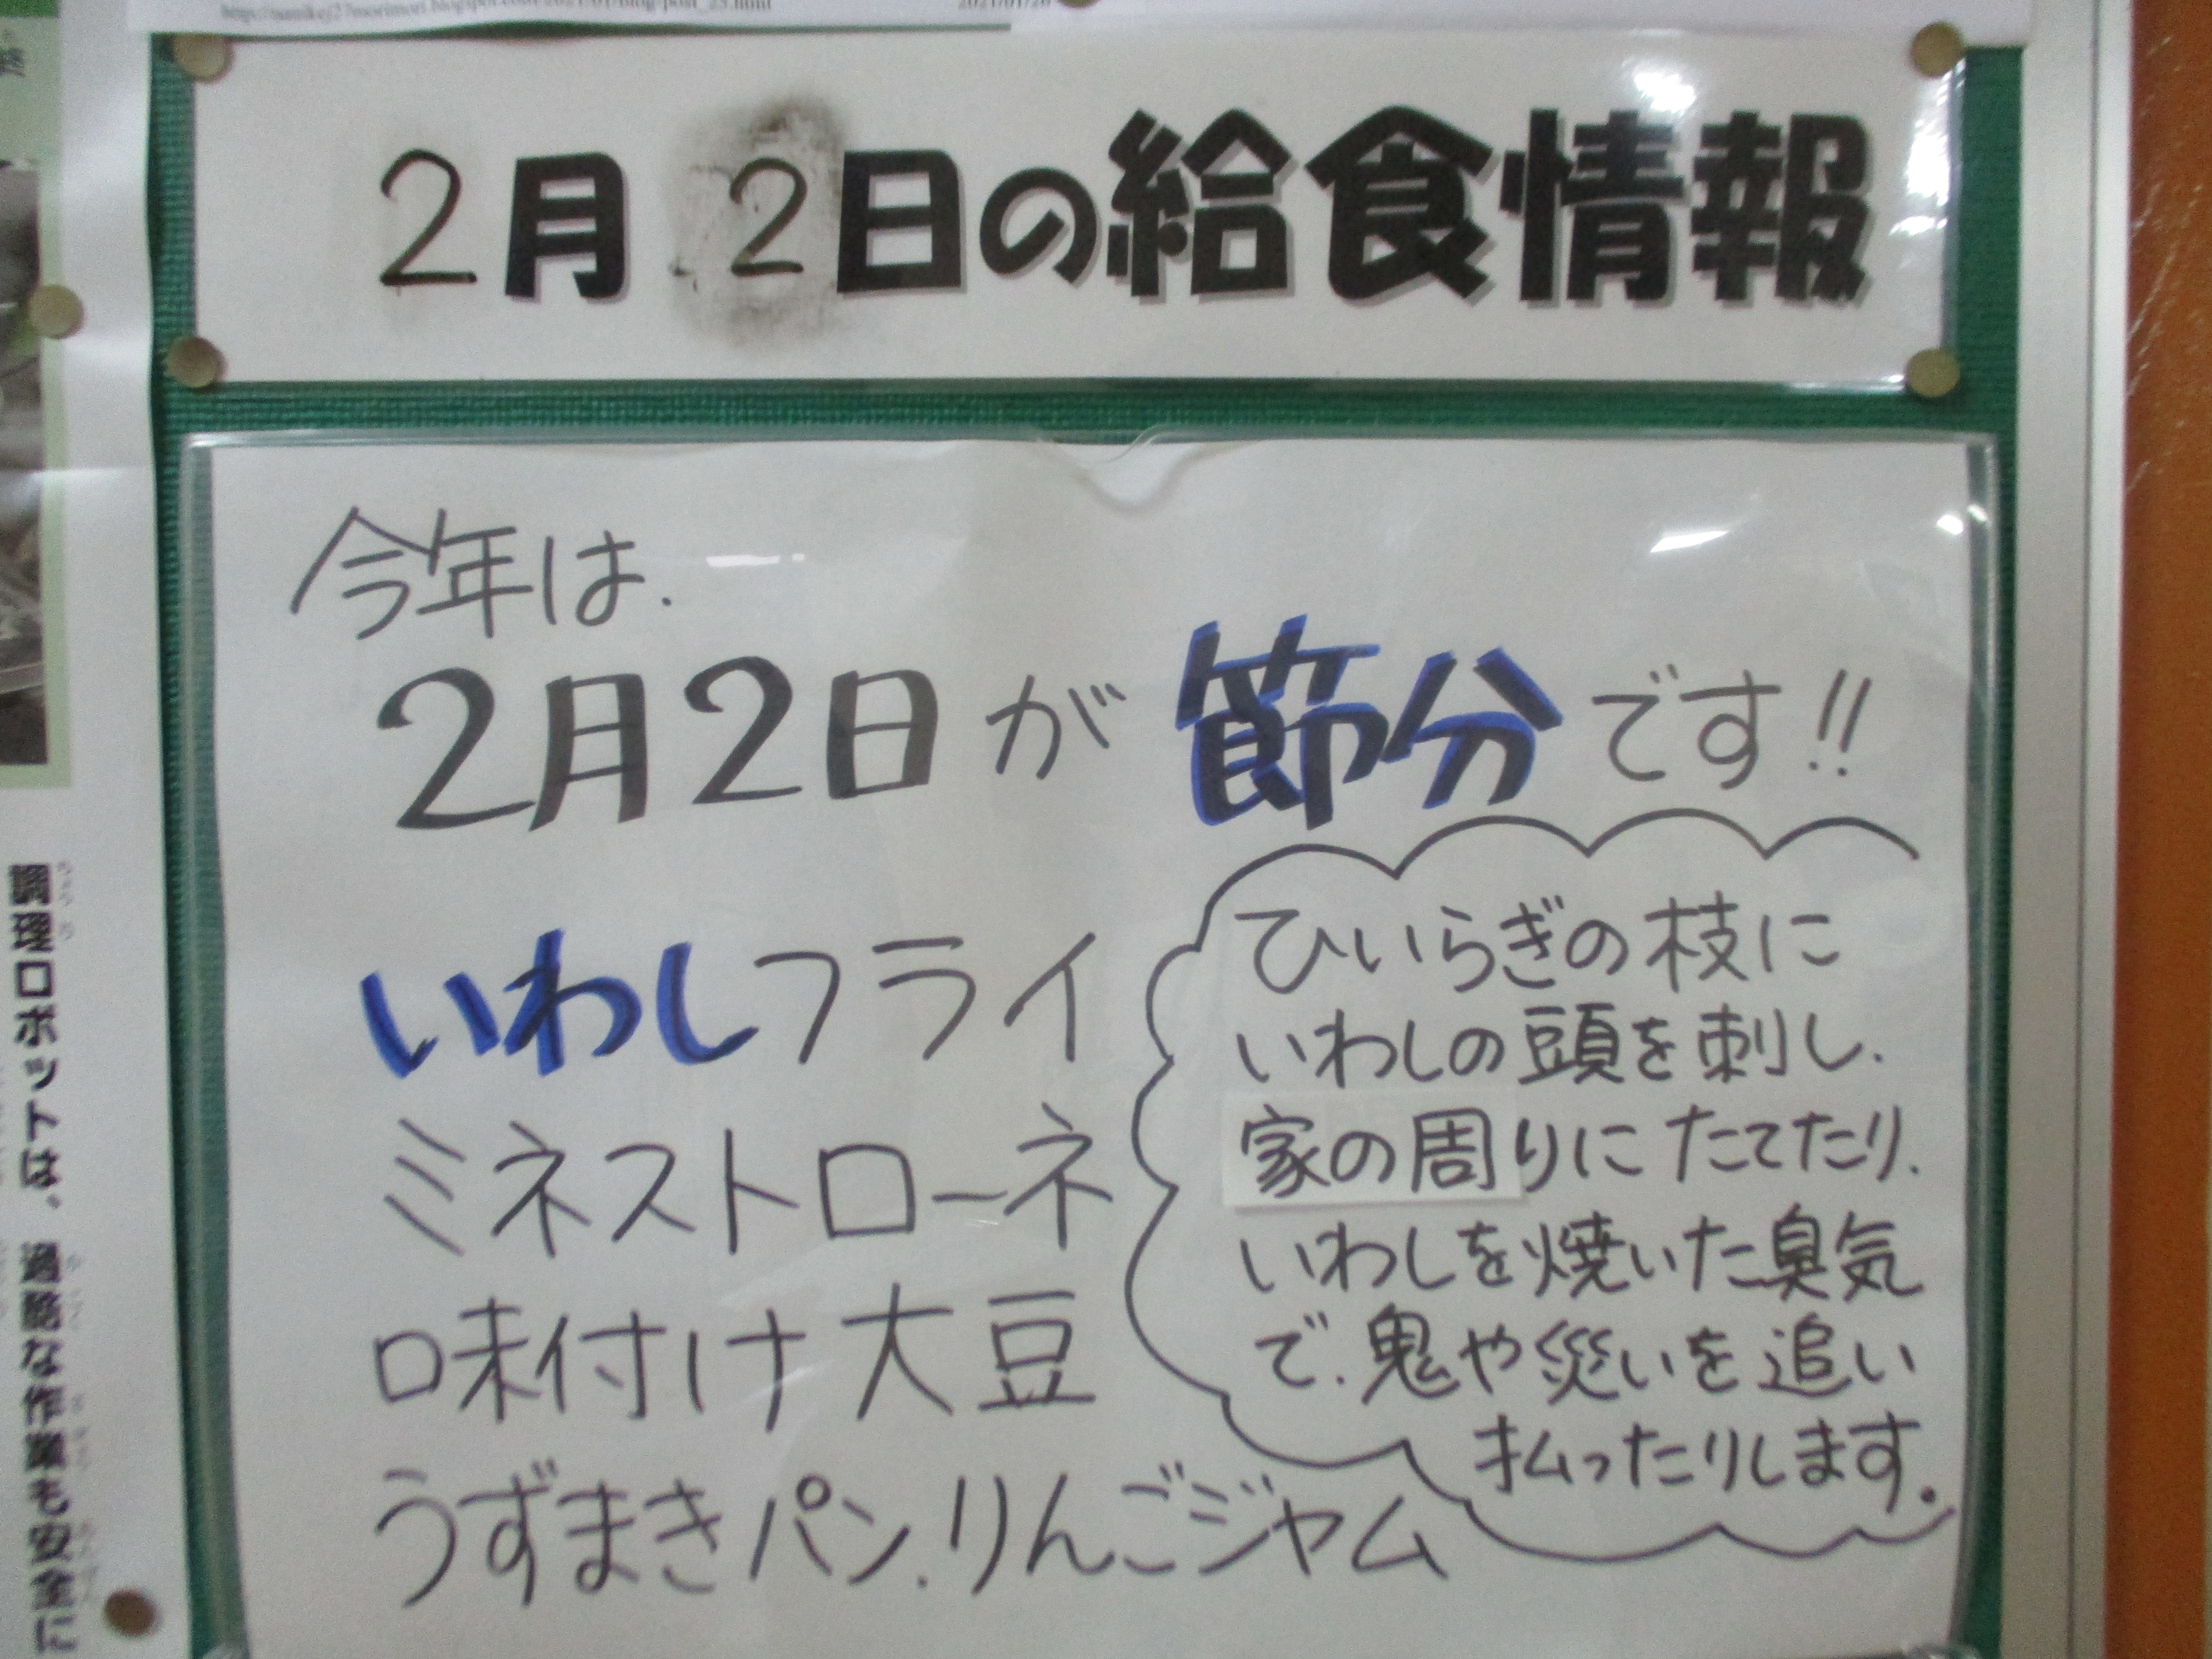 2月 2日の給食情報
今年は、
2月2日が節分です!!
いわしフライ
ミネストローネ
味付け大豆
うずまきパン、りんごジャム
ひいらぎの枝に
いわしの頭を刺し、
家の周りにたてたり、
いわしを焼いた臭気
で、鬼や災いを追い
払ったりします。
調理ロボットは、過酷な作業も安全に